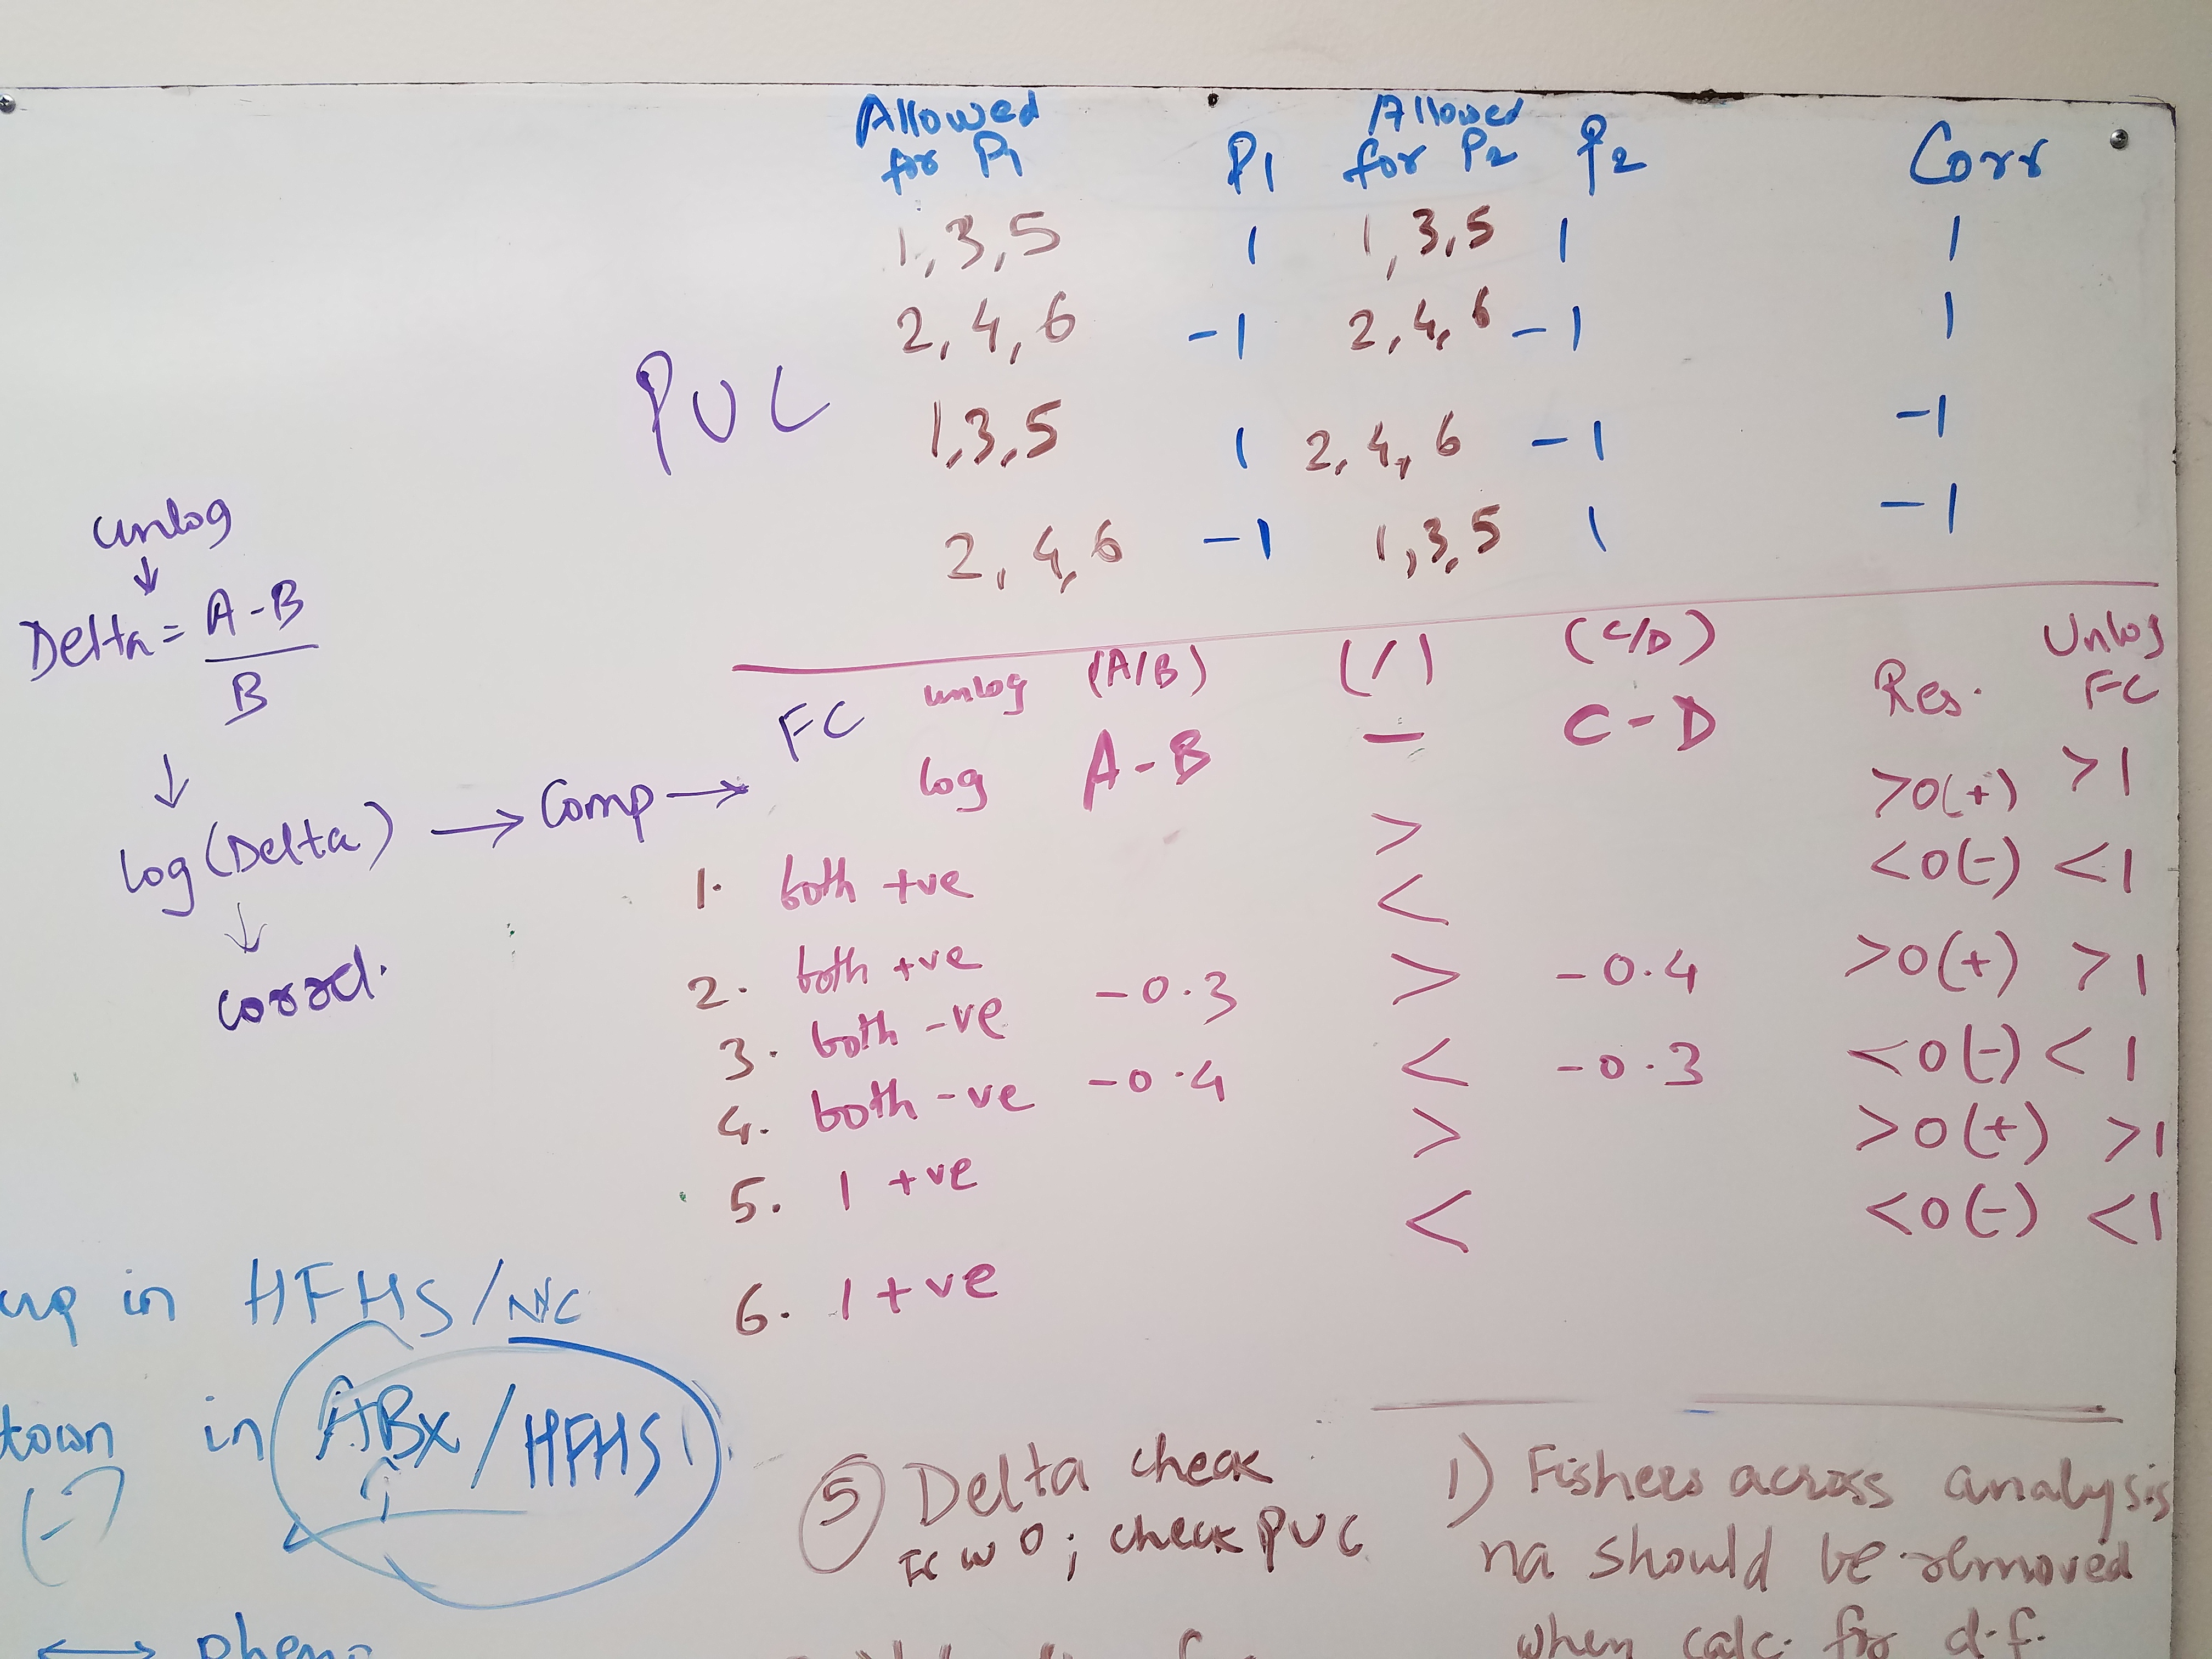 Allowed for P1 P1 Allowed for P2 P2 Corr
1,3,5 1 1,3,5 1 1
2,4,6 -1 2,4,6 -1 1
PUC
1,3,5 1 2,4,6 -1 -1
2,4,6 -1 1,3,5 1 -1
unlog
↓
Delta = A-B
B
↓
log(Delta) → Comp →
↓
correl.
FC unlog (A/B) (/) (C/D) Res. Unlog FC
log A-B - C-D
1. both +ve > >0(+) >1
2. both +ve < <0(-) <1
3. both -ve -0.3 > -0.4 >0(+) >1
4. both -ve -0.4 < -0.3 <0(-) <1
5. 1 +ve > >0(+) >1
6. 1 +ve < <0(-) <1
up in HFHS/NC
in ABx/HFHS
(-)
↔ pheno
5 Delta check
0; check PUC
1) Fishers across analysis
na should be removed
when calc. for d.f.